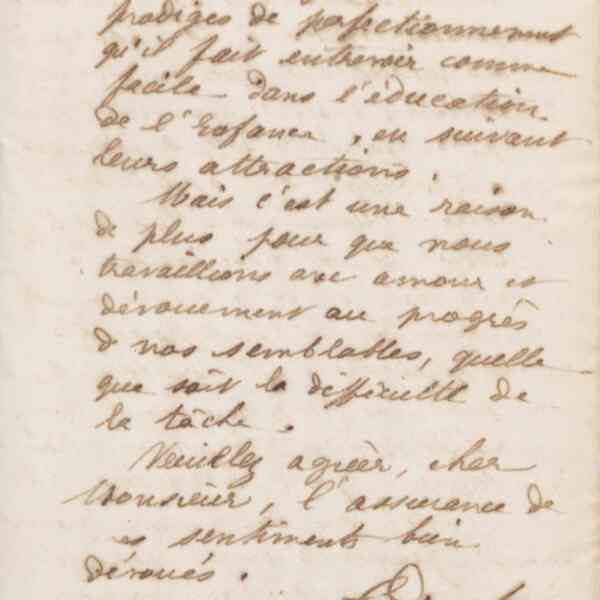 prodiges de perfectionnement
qu'il fait entrevoir comme
facile dans l'éducation
de l'Enfance, en suivant
leurs attractions.
Mais c'est une raison
de plus pour que nous
travaillions avec amour et
dévouement au progrès
de nos semblables, quelle
que soit la difficulté de
la tâche.
Veuillez agréer, cher
Monsieur, l'assurance de
sentiments bien
dévoués.